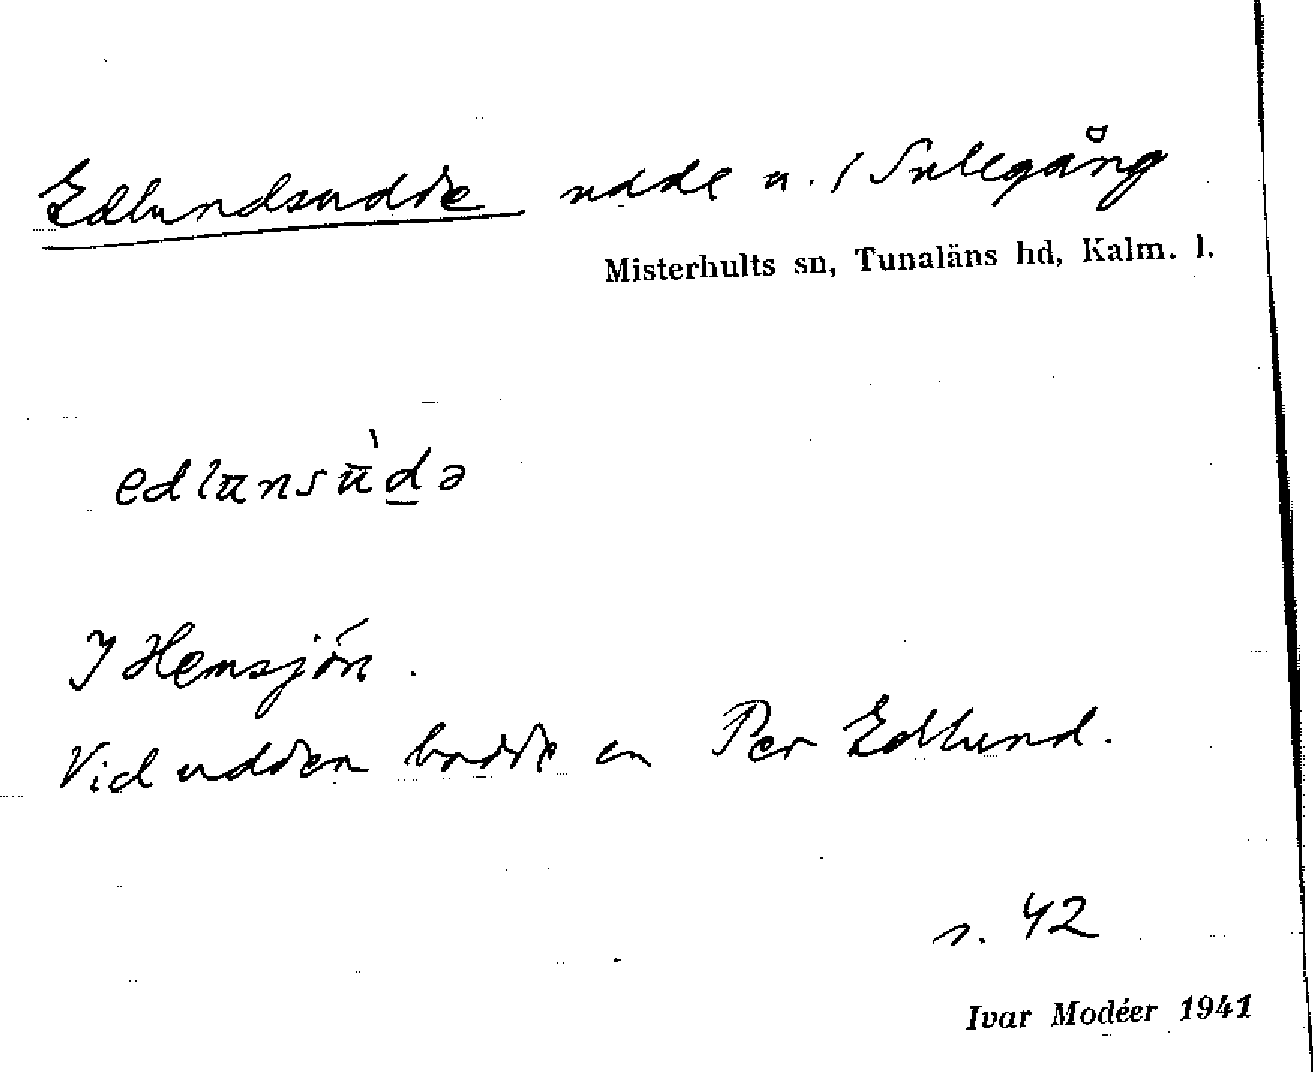 Edlundsudde udde u. / Sulegång
Misterhults sn, Tunaläns hd, Kalm. l.
edlunsùdə
I Hemsjön.
Vid udden bodde en Per Edlund.
s. 42
Ivar Modéer 1941